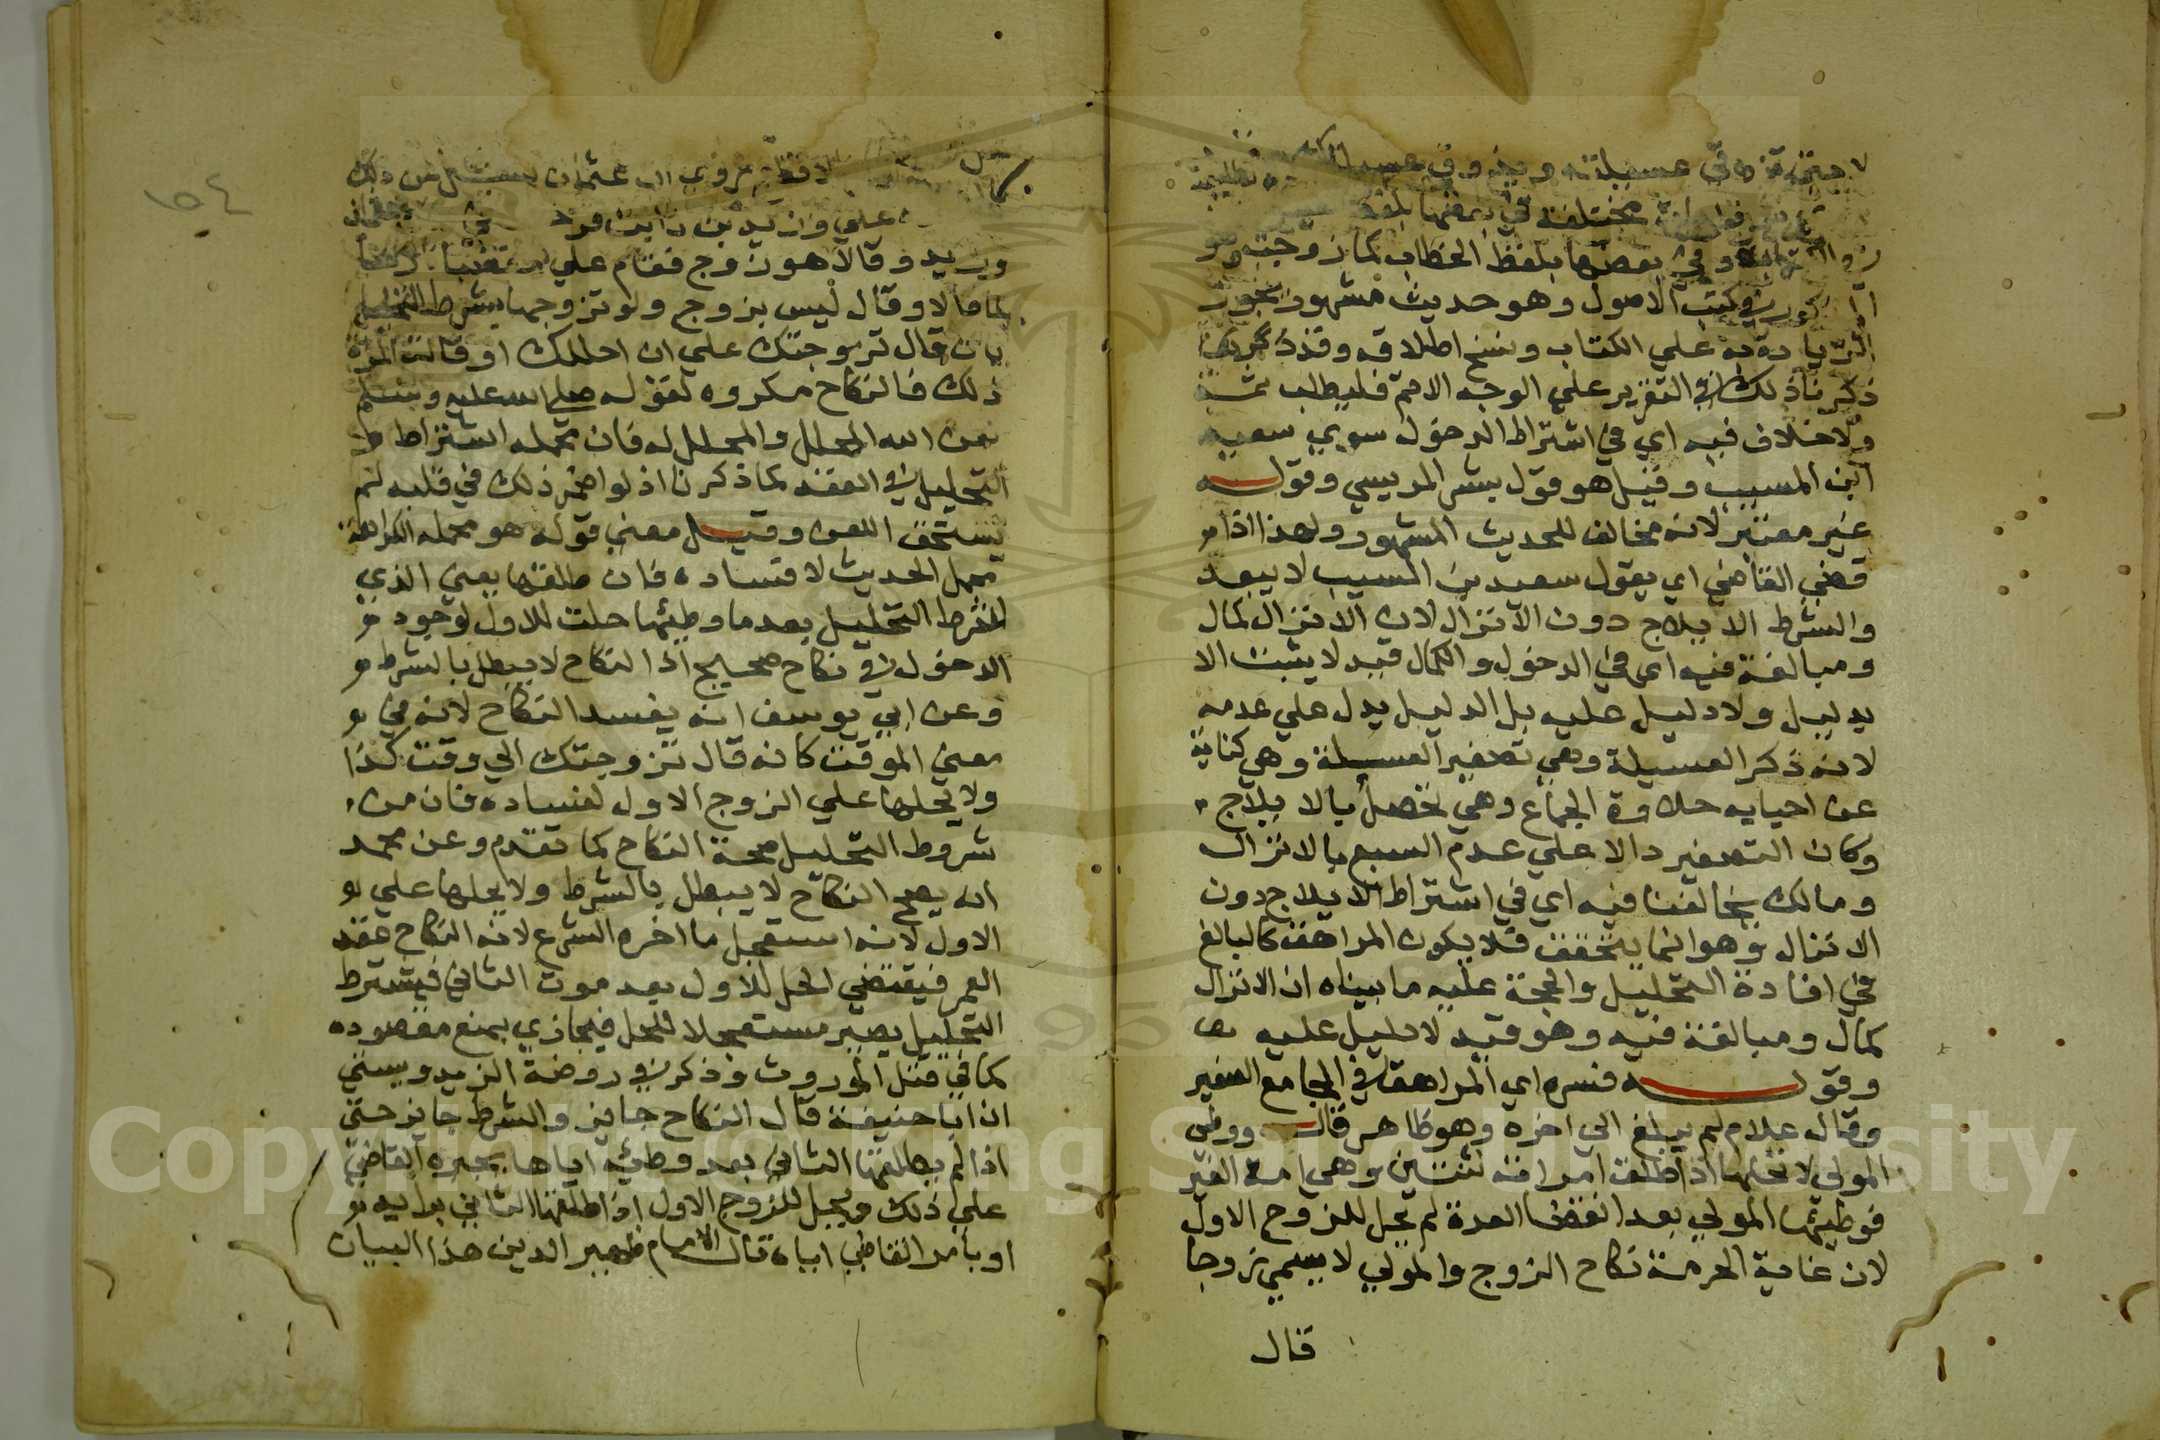 لا حتى تذوقي عسيلته ويذوق عسيلتك
مختلفة في بعضها بلفظ
وفي بعضها بلفظ الخطاب كما
في كتب الاصول وهو حديث مشهور يجوز
به علي الكتاب ونسخ اطلاقه وقد
ذكرنا ذلك في التقرير علي الوجه الاتم فليطلب ثمة
ولا خلاف فيه اي في اشتراط الدخول سوي سعيد
ابن المسيب وقيل هو قول بشر المريسي وقوله
غير معتبر لانه مخالف للحديث المشهور ولهذا اذا
قضي القاضي اي بقول سعيد بن المسيب لا ينفذ
والشرط الايلاج دون الانزال لان الانزال كمال
ومبالغة فيه اي في الدخول والكمال قيد لا يثبت الا
بدليل ولا دليل عليه بل الدليل يدل علي عدمه
لانه ذكر العسيلة وهي تصغير العسلة وهي كناية
عن اصابة حلاوة الجماع وهي تحصل بالايلاج
وكان التصغير دالا علي عدم الشبع بالانزال
ومالك يخالفنا فيه اي في اشتراط الايلاج دون
الانزال وهو انما يتحقق فلا يكون المراهق كالبالغ
في افادة التحليل والحجة عليه ما بيناه ان الانزال
كمال ومبالغة فيه وهو قيد لا دليل عليه
وقوله فسره اي المراهق في الجامع الصغير
وقال غلام لم يبلغ الي اخره وهو ظاهر قال ووطي
المولي لا تحلها اذا طلق امراته ثنتين وهي امة الغير
فوطيها المولي بعد انقضا العدة لم تحل للزوج الاول
لان غاية الحرمة نكاح الزوج والمولي لا يسمي زوجا
قال
١٥٤
روي ان عثمان سئل عن ذلك
علي وزيد بن ثابت
وزيد وقالا هو زوج فقام علي مغضبا
لما قالا وقال ليس بزوج ولو تزوجها بشرط التحليل
بان قال تزوجتك علي ان احللك او قالت المرة
ذلك فالنكاح مكروه لقوله صلي الله عليه وسلم
لعن الله المحلل والمحلل له فان محمله اشتراط
التحليل في العقد كما ذكرنا اذ لو اضمر ذلك في قلبه لم
يستحق اللعن وقيل معني قوله هو محمله الكراهة
محمل الحديث لا فساده فان طلقها يعني الذي
شرط التحليل بعد ما وطئها حلت للاول لوجود
الدخول في نكاح صحيح اذ النكاح لا يبطل بالشرط
وعن ابي يوسف انه يفسد النكاح لانه في
معني الموقت كانه قال تزوجتك الي وقت كذا
ولا يحلها علي الزوج الاول لفساده فان من
شروط التحليل صحة النكاح كما تقدم وعن محمد
انه يصح النكاح لا يبطل بالشرط ولا يحلها علي
الاول لانه استعجل ما اخره الشرع لانه النكاح عقد
العمر فيقتضي الحل للاول بعد موت الثاني فبشرط
التحليل يصير مستعجلا للحل فيجازي بمنع مقصوده
كما في قتل المورث وذكر في روضة الزندويستي
ان ابا حنيفة قال النكاح جايز والشرط جايز حتي
اذا لم يطلقها الثاني بعد وطئه اياها يجبره القاضي
علي ذلك ويحل للزوج الاول اذا طلقها الثاني برايه
او بامر القاضي اياه قال الامام ظهير الدين هذا البيان
Copyright © King Saud University